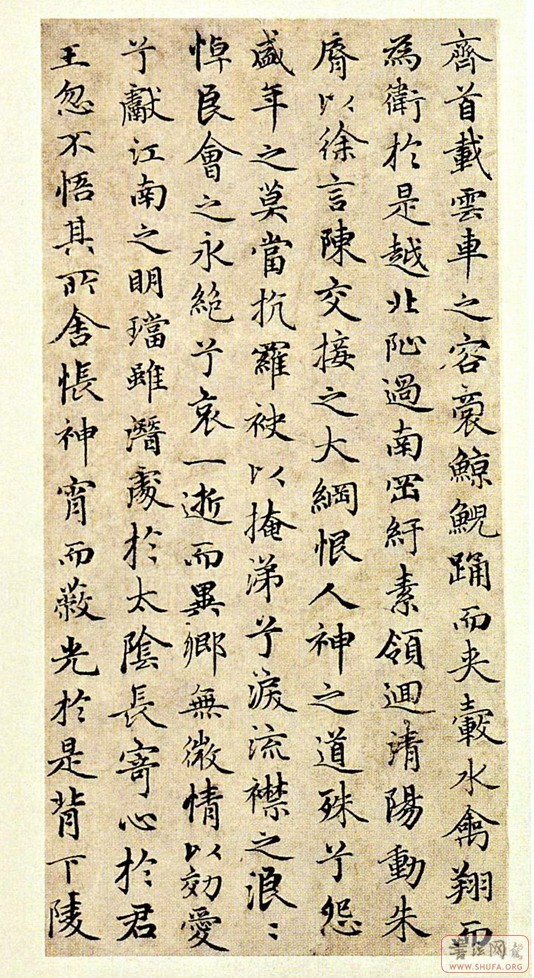 齊首載雲車之容裔鯨鯢踊而夾轂水禽翔而
為衛於是越北沚過南岡紆素領迴清陽動朱
脣以徐言陳交接之大綱恨人神之道殊兮怨
盛年之莫當抗羅袂以掩涕兮淚流襟之浪〻
悼良會之永絕兮哀一逝而異鄉無微情以効愛
兮獻江南之明璫雖潛處於太陰長寄心於君
王忽不悟其所舍悵神宵而蔽光於是背下陵
书法网
WWW.SHUFA.ORG